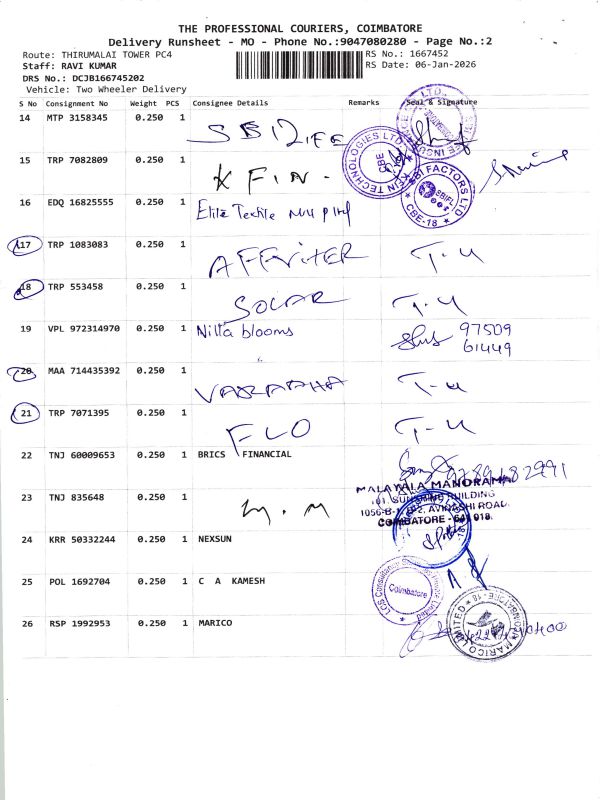 THE PROFESSIONAL COURIERS, COIMBATORE
Delivery Runsheet - MO - Phone No.:9047080280 - Page No.:2
Route: THIRUMALAI TOWER PC4
RS No.: 1667452
Staff: RAVI KUMAR
RS Date: 06-Jan-2026
DRS No.: DCJB166745202
Vehicle: Two Wheeler Delivery
S No Consignment No Weight PCS Consignee Details Remarks Seal & Signature
14 MTP 3158345 0.250 1 SBI LIFE
15 TRP 7082809 0.250 1 K FIN.
KFIN TECHNOLOGIES LTD. CBE
16 EDQ 16825555 0.250 1 Elite Textile
SBI FACTORS LTD SBIFL CBE-18
17 TRP 1083083 0.250 1 T-4
18 TRP 553458 0.250 1 SOLAR T-4
19 VPL 972314970 0.250 1 Nilla blooms 97509
61449
20 MAA 714435392 0.250 1 VARADHA T-4
21 TRP 7071395 0.250 1 FLO T-4
22 TNJ 60009653 0.250 1 BRICS FINANCIAL
MALAYALA MANORAMA
23 TNJ 835648 0.250 1 M.M
BUILDING
AVINASHI ROAD
COIMBATORE - 641 018.
24 KRR 50332244 0.250 1 NEXSUN
25 POL 1692704 0.250 1 C A KAMESH
Coimbatore
26 RSP 1992953 0.250 1 MARICO
MARICO LIMITED